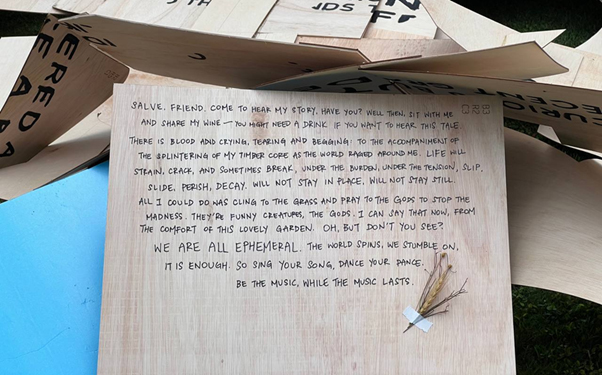 TH
NDS
FI
ERED
EA
AR
CURIO
ECENTL
SALVE, FRIEND. COME TO HEAR MY STORY, HAVE YOU? WELL THEN, SIT WITH ME
AND SHARE MY WINE — YOU MIGHT NEED A DRINK IF YOU WANT TO HEAR THIS TALE.
THERE IS BLOOD AND CRYING, TEARING AND BEGGING: TO THE ACCOMPANIMENT OF
THE SPLINTERING OF MY TIMBER CORE AS THE WORLD RAGED AROUND ME. LIFE WILL
STRAIN, CRACK, AND SOMETIMES BREAK, UNDER THE BURDEN, UNDER THE TENSION, SLIP,
SLIDE, PERISH, DECAY. WILL NOT STAY IN PLACE, WILL NOT STAY STILL.
ALL I COULD DO WAS CLING TO THE GRASS AND PRAY TO THE GODS TO STOP THE
MADNESS. THEY'RE FUNNY CREATURES, THE GODS. I CAN SAY THAT NOW, FROM
THE COMFORT OF THIS LOVELY GARDEN. OH, BUT DON'T YOU SEE?
WE ARE ALL EPHEMERAL. THE WORLD SPINS, WE STUMBLE ON,
IT IS ENOUGH. SO SING YOUR SONG, DANCE YOUR DANCE.
BE THE MUSIC, WHILE THE MUSIC LASTS.